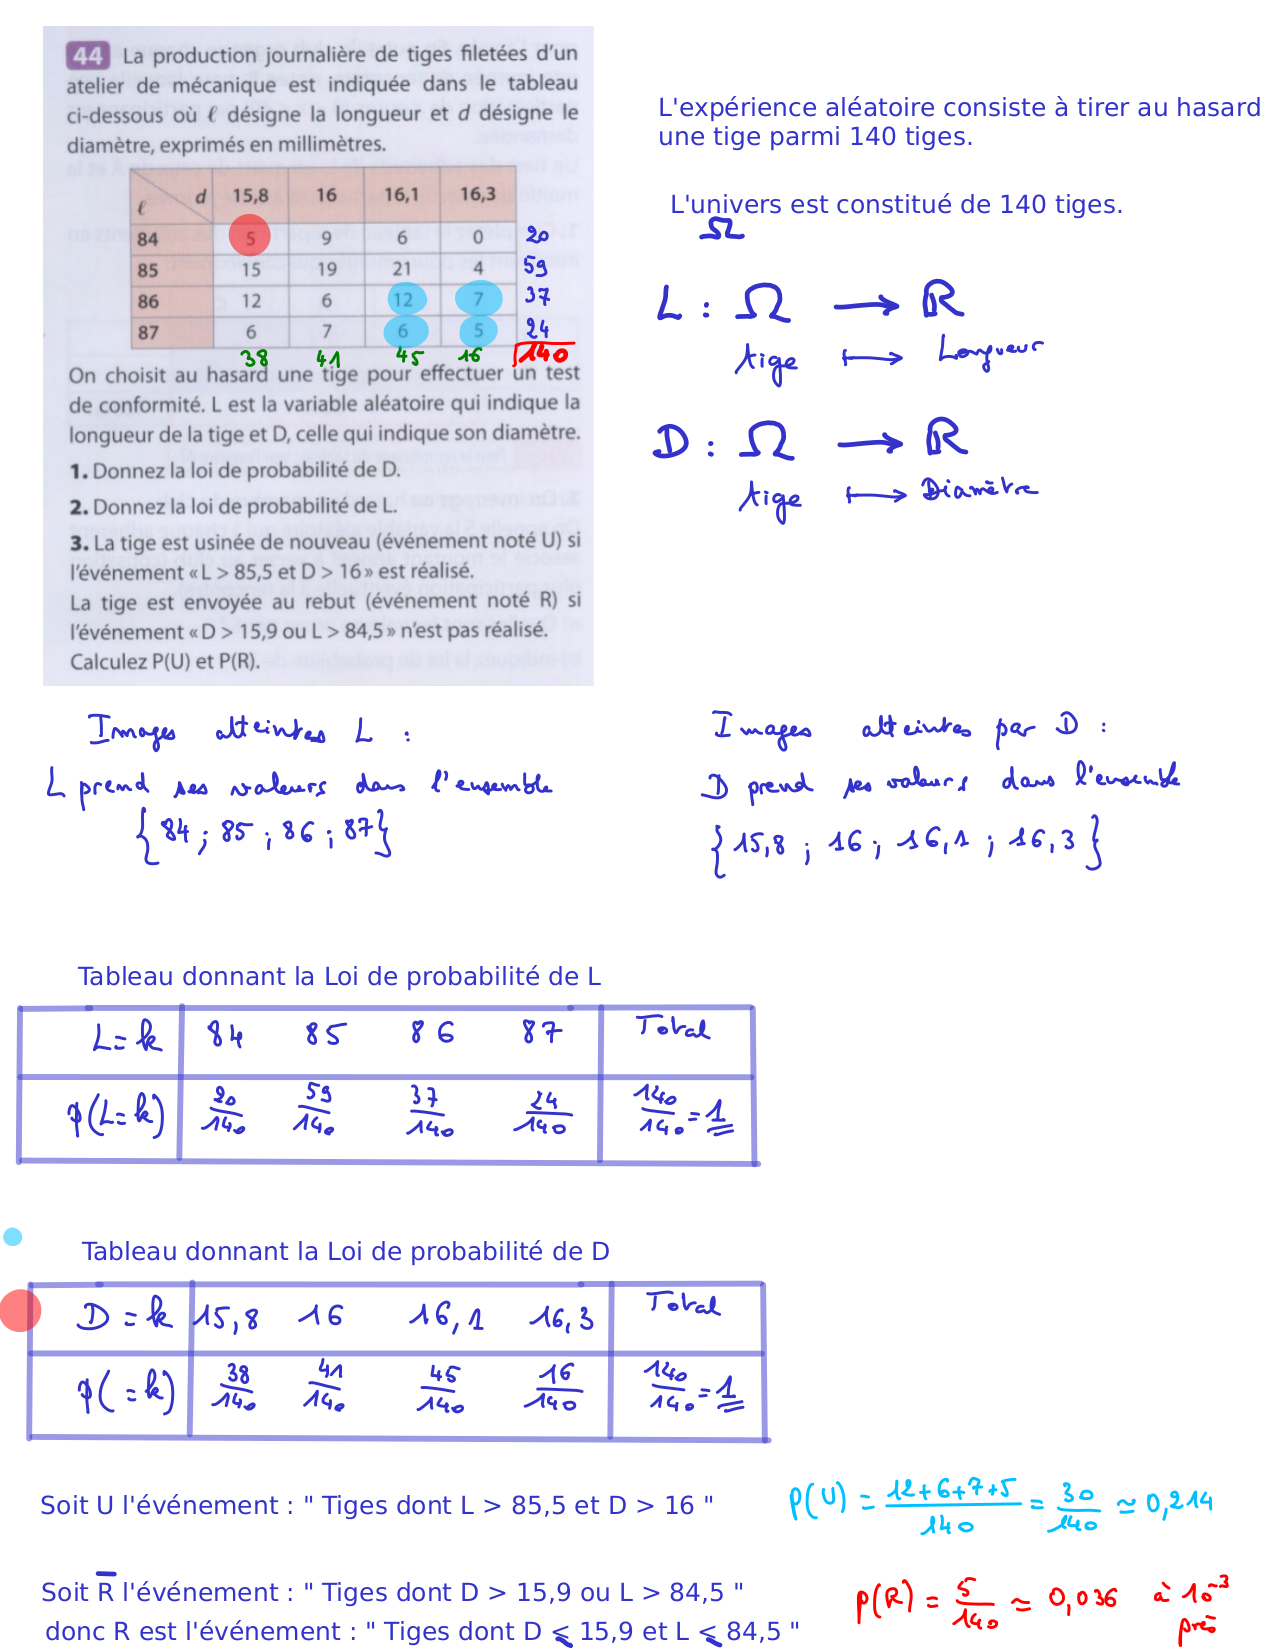 44 La production journalière de tiges filetées d'un
atelier de mécanique est indiquée dans le tableau
ci-dessous où ℓ désigne la longueur et d désigne le
diamètre, exprimés en millimètres.
ℓ d 15,8 16 16,1 16,3
84 5 9 6 0 20
85 15 19 21 4 59
86 12 6 12 7 37
87 6 7 6 5 24
38 41 45 16 140
On choisit au hasard une tige pour effectuer un test
de conformité. L est la variable aléatoire qui indique la
longueur de la tige et D, celle qui indique son diamètre.
1. Donnez la loi de probabilité de D.
2. Donnez la loi de probabilité de L.
3. La tige est usinée de nouveau (événement noté U) si
l'événement « L > 85,5 et D > 16 » est réalisé.
La tige est envoyée au rebut (événement noté R) si
l'événement « D > 15,9 ou L > 84,5 » n'est pas réalisé.
Calculez P(U) et P(R).
L'expérience aléatoire consiste à tirer au hasard
une tige parmi 140 tiges.
L'univers est constitué de 140 tiges.
Ω
L : Ω → ℝ
tige ↦ Longueur
D : Ω → ℝ
tige ↦ Diamètre
Images atteintes L :
L prend ses valeurs dans l'ensemble
{84 ; 85 ; 86 ; 87}
Images atteintes par D :
D prend ses valeurs dans l'ensemble
{15,8 ; 16 ; 16,1 ; 16,3}
Tableau donnant la Loi de probabilité de L
L=k 84 85 86 87 Total
p(L=k) 20/140 59/140 37/140 24/140 140/140 = 1
Tableau donnant la Loi de probabilité de D
D=k 15,8 16 16,1 16,3 Total
p( =k) 38/140 41/140 45/140 16/140 140/140 = 1
Soit U l'événement : " Tiges dont L > 85,5 et D > 16 "
p(U) = (12+6+7+5)/140 = 30/140 ≃ 0,214
Soit R̅ l'événement : " Tiges dont D > 15,9 ou L > 84,5 "
donc R est l'événement : " Tiges dont D ≤ 15,9 et L ≤ 84,5 "
p(R) = 5/140 ≃ 0,036 à 10⁻³
près